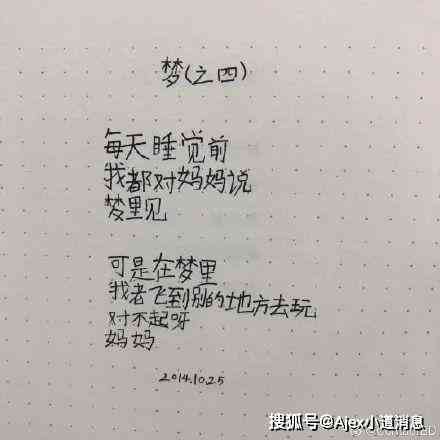 梦(之四)
每天睡觉前
我都对妈妈说
梦里见
可是在梦里
我老飞到别的地方去玩
对不起呀
妈妈
2014.10.25
搜狐号@Ajex小道消息